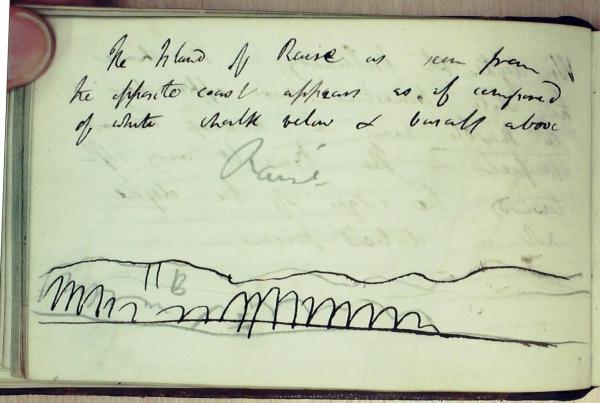 The Island of Raise as seen from
the opposite coast appears as if composed
of white chalk below & basalt above
Raise
B